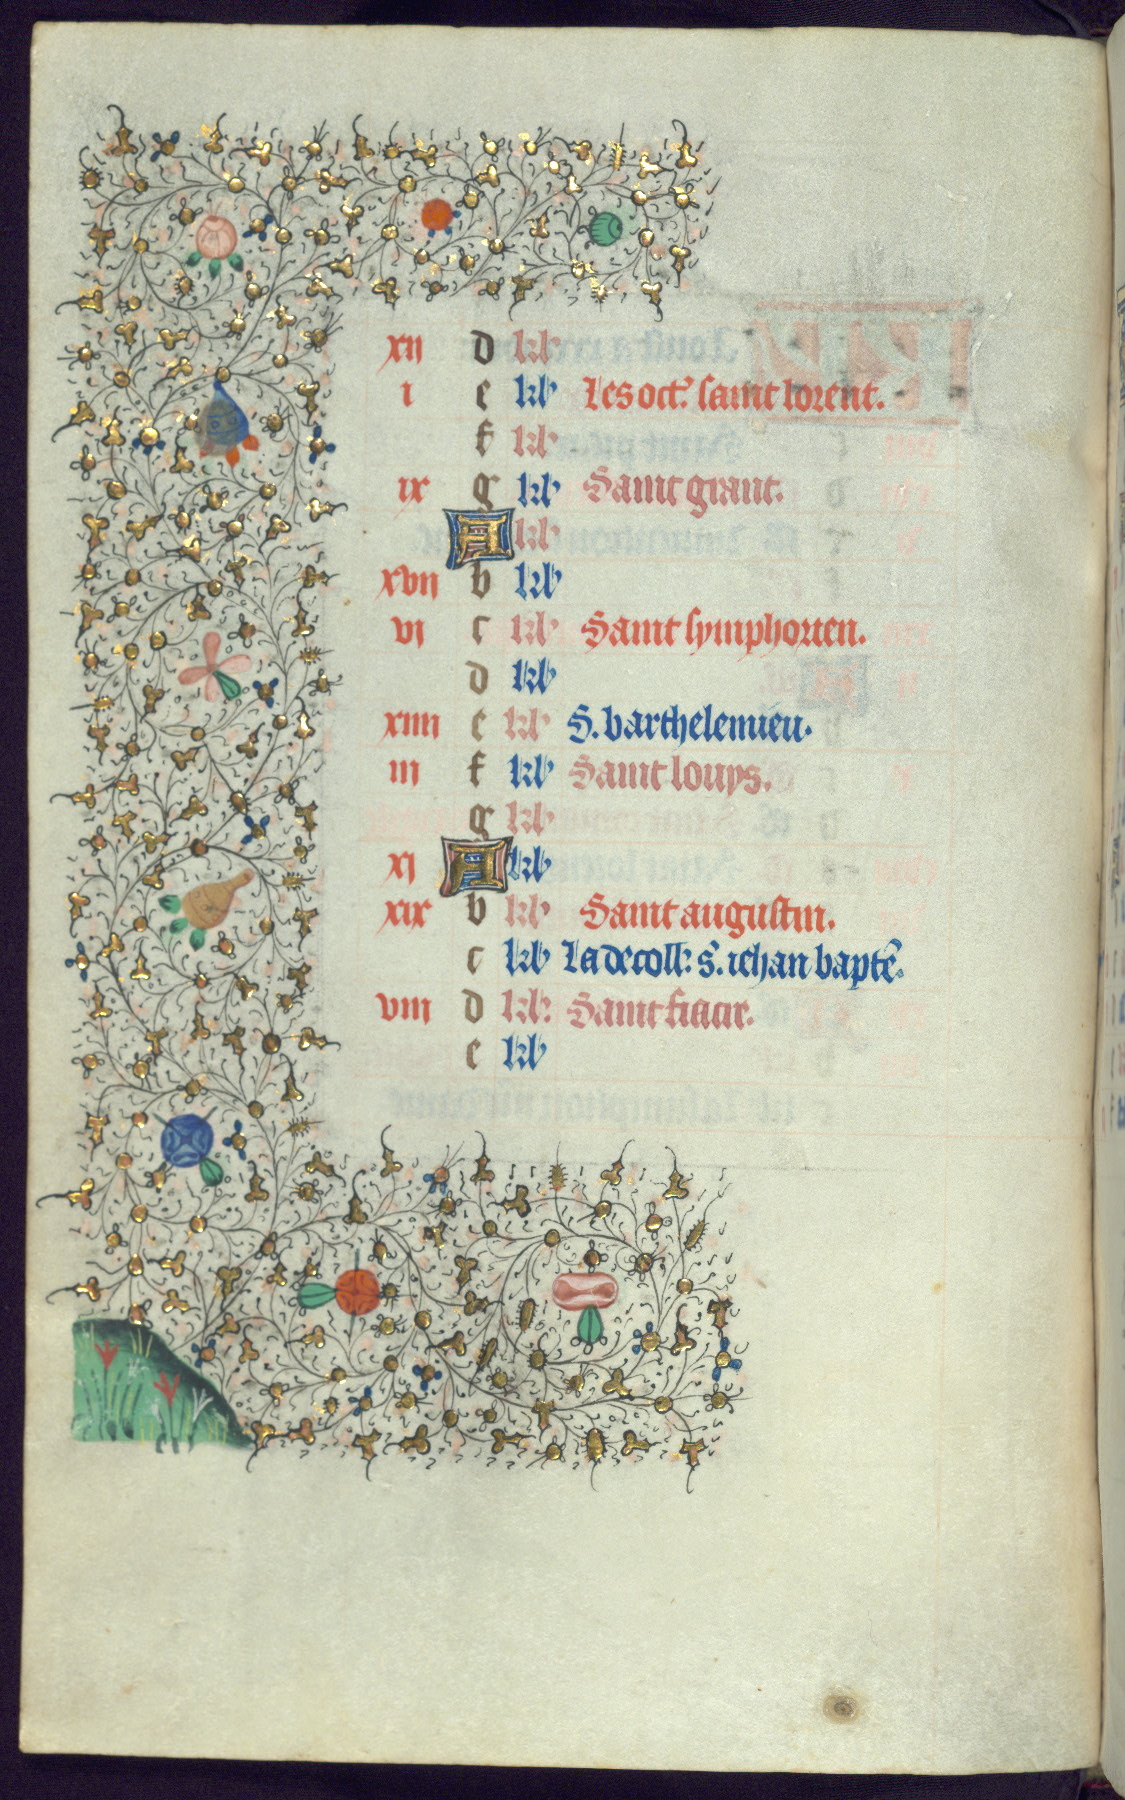 xii d kl
i e kl Les oct. saint lorent.
f kl
ix g kl Saint grant.
A kl
xvii b kl
vi c kl Saint symphorien.
d kl
xiiii e kl S. barthelemieu.
iii f kl Saint louys.
g kl
xi A kl
xix b kl Saint augustin.
c kl La decoll. s. iehan bapte.
viii d kl Saint fiacir.
e kl